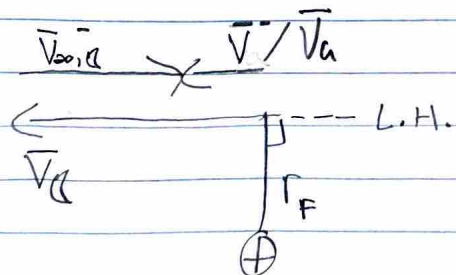 V̅∞,☾ V̅⁻/V̅a
--- L.H.
V̅☾
r_F
⊕